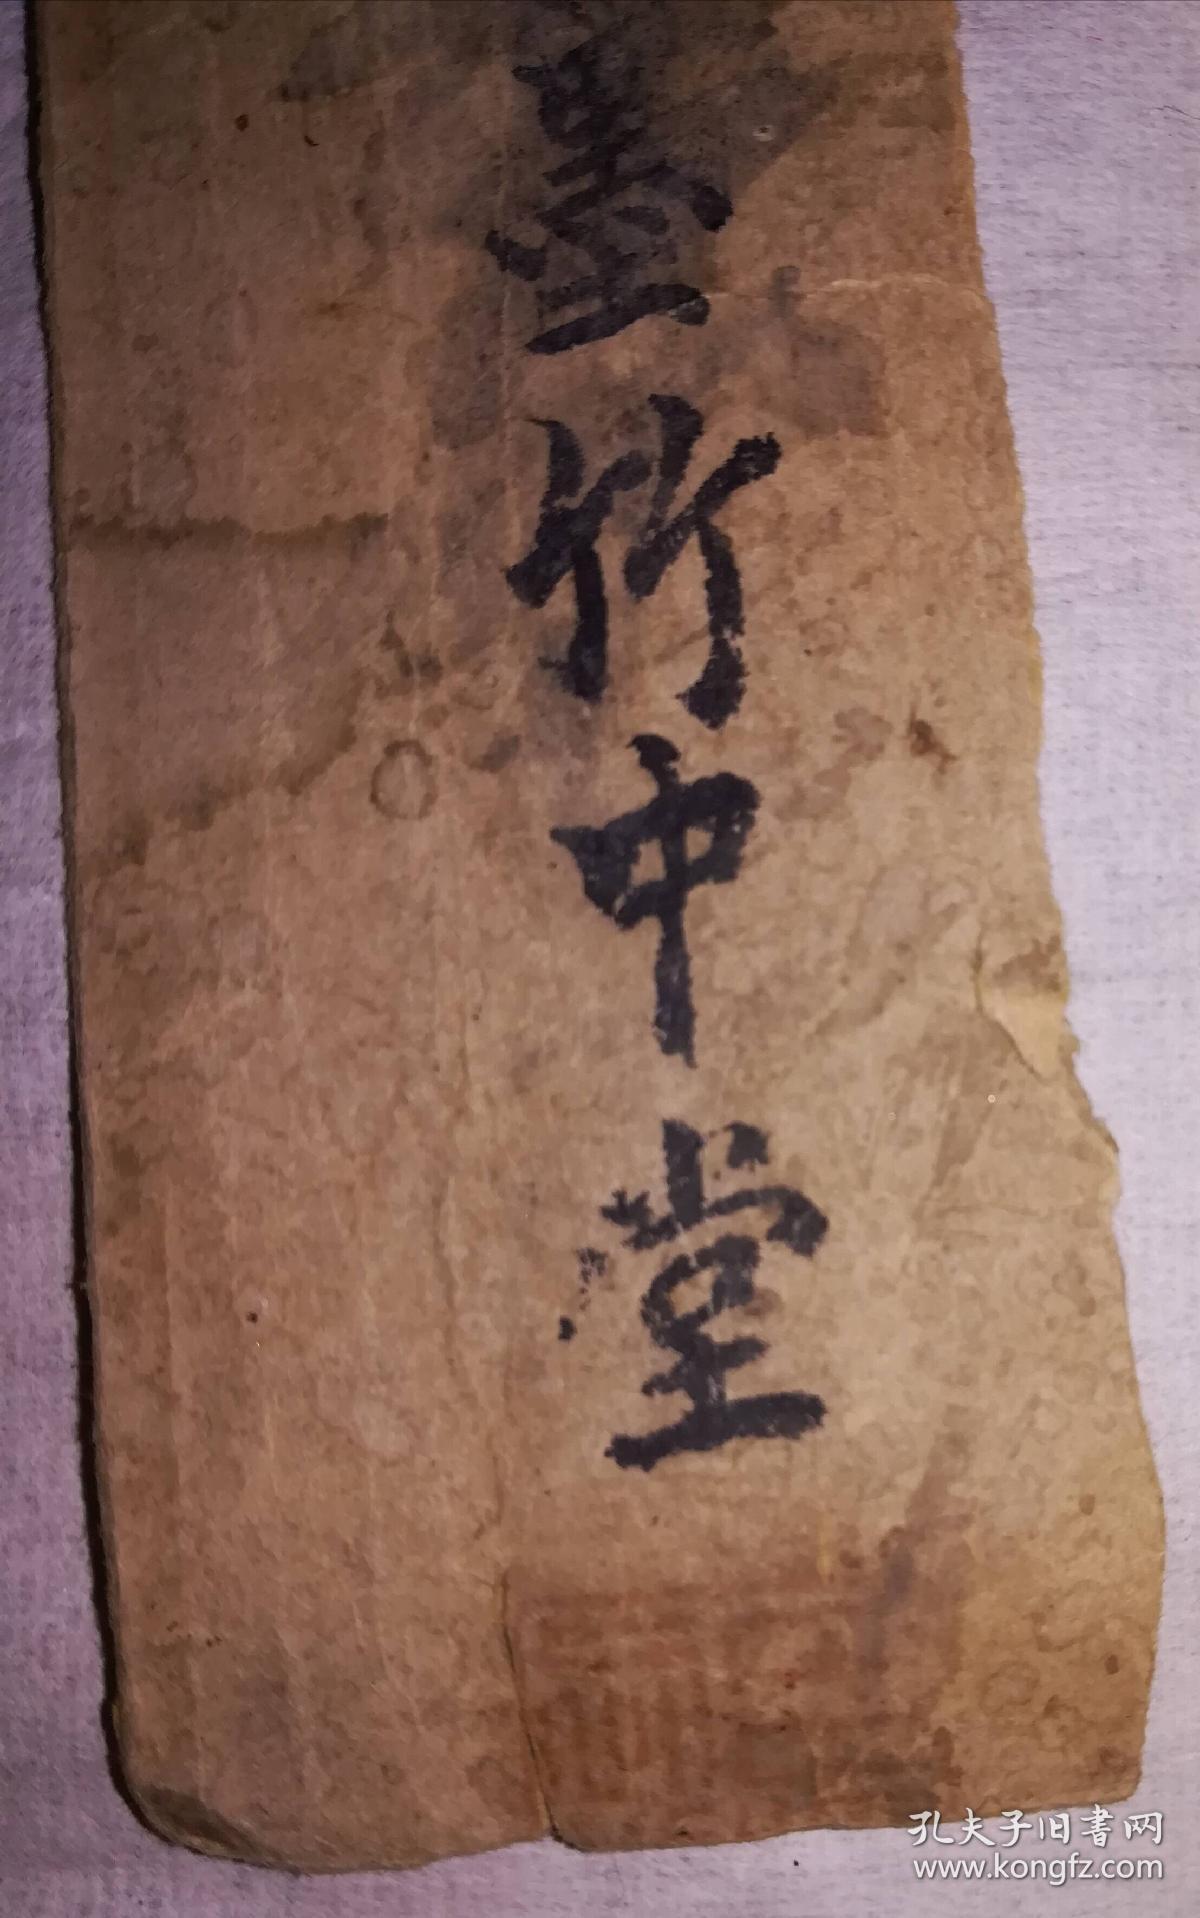 墨竹中堂
孔夫子旧書网
www.kongfz.com